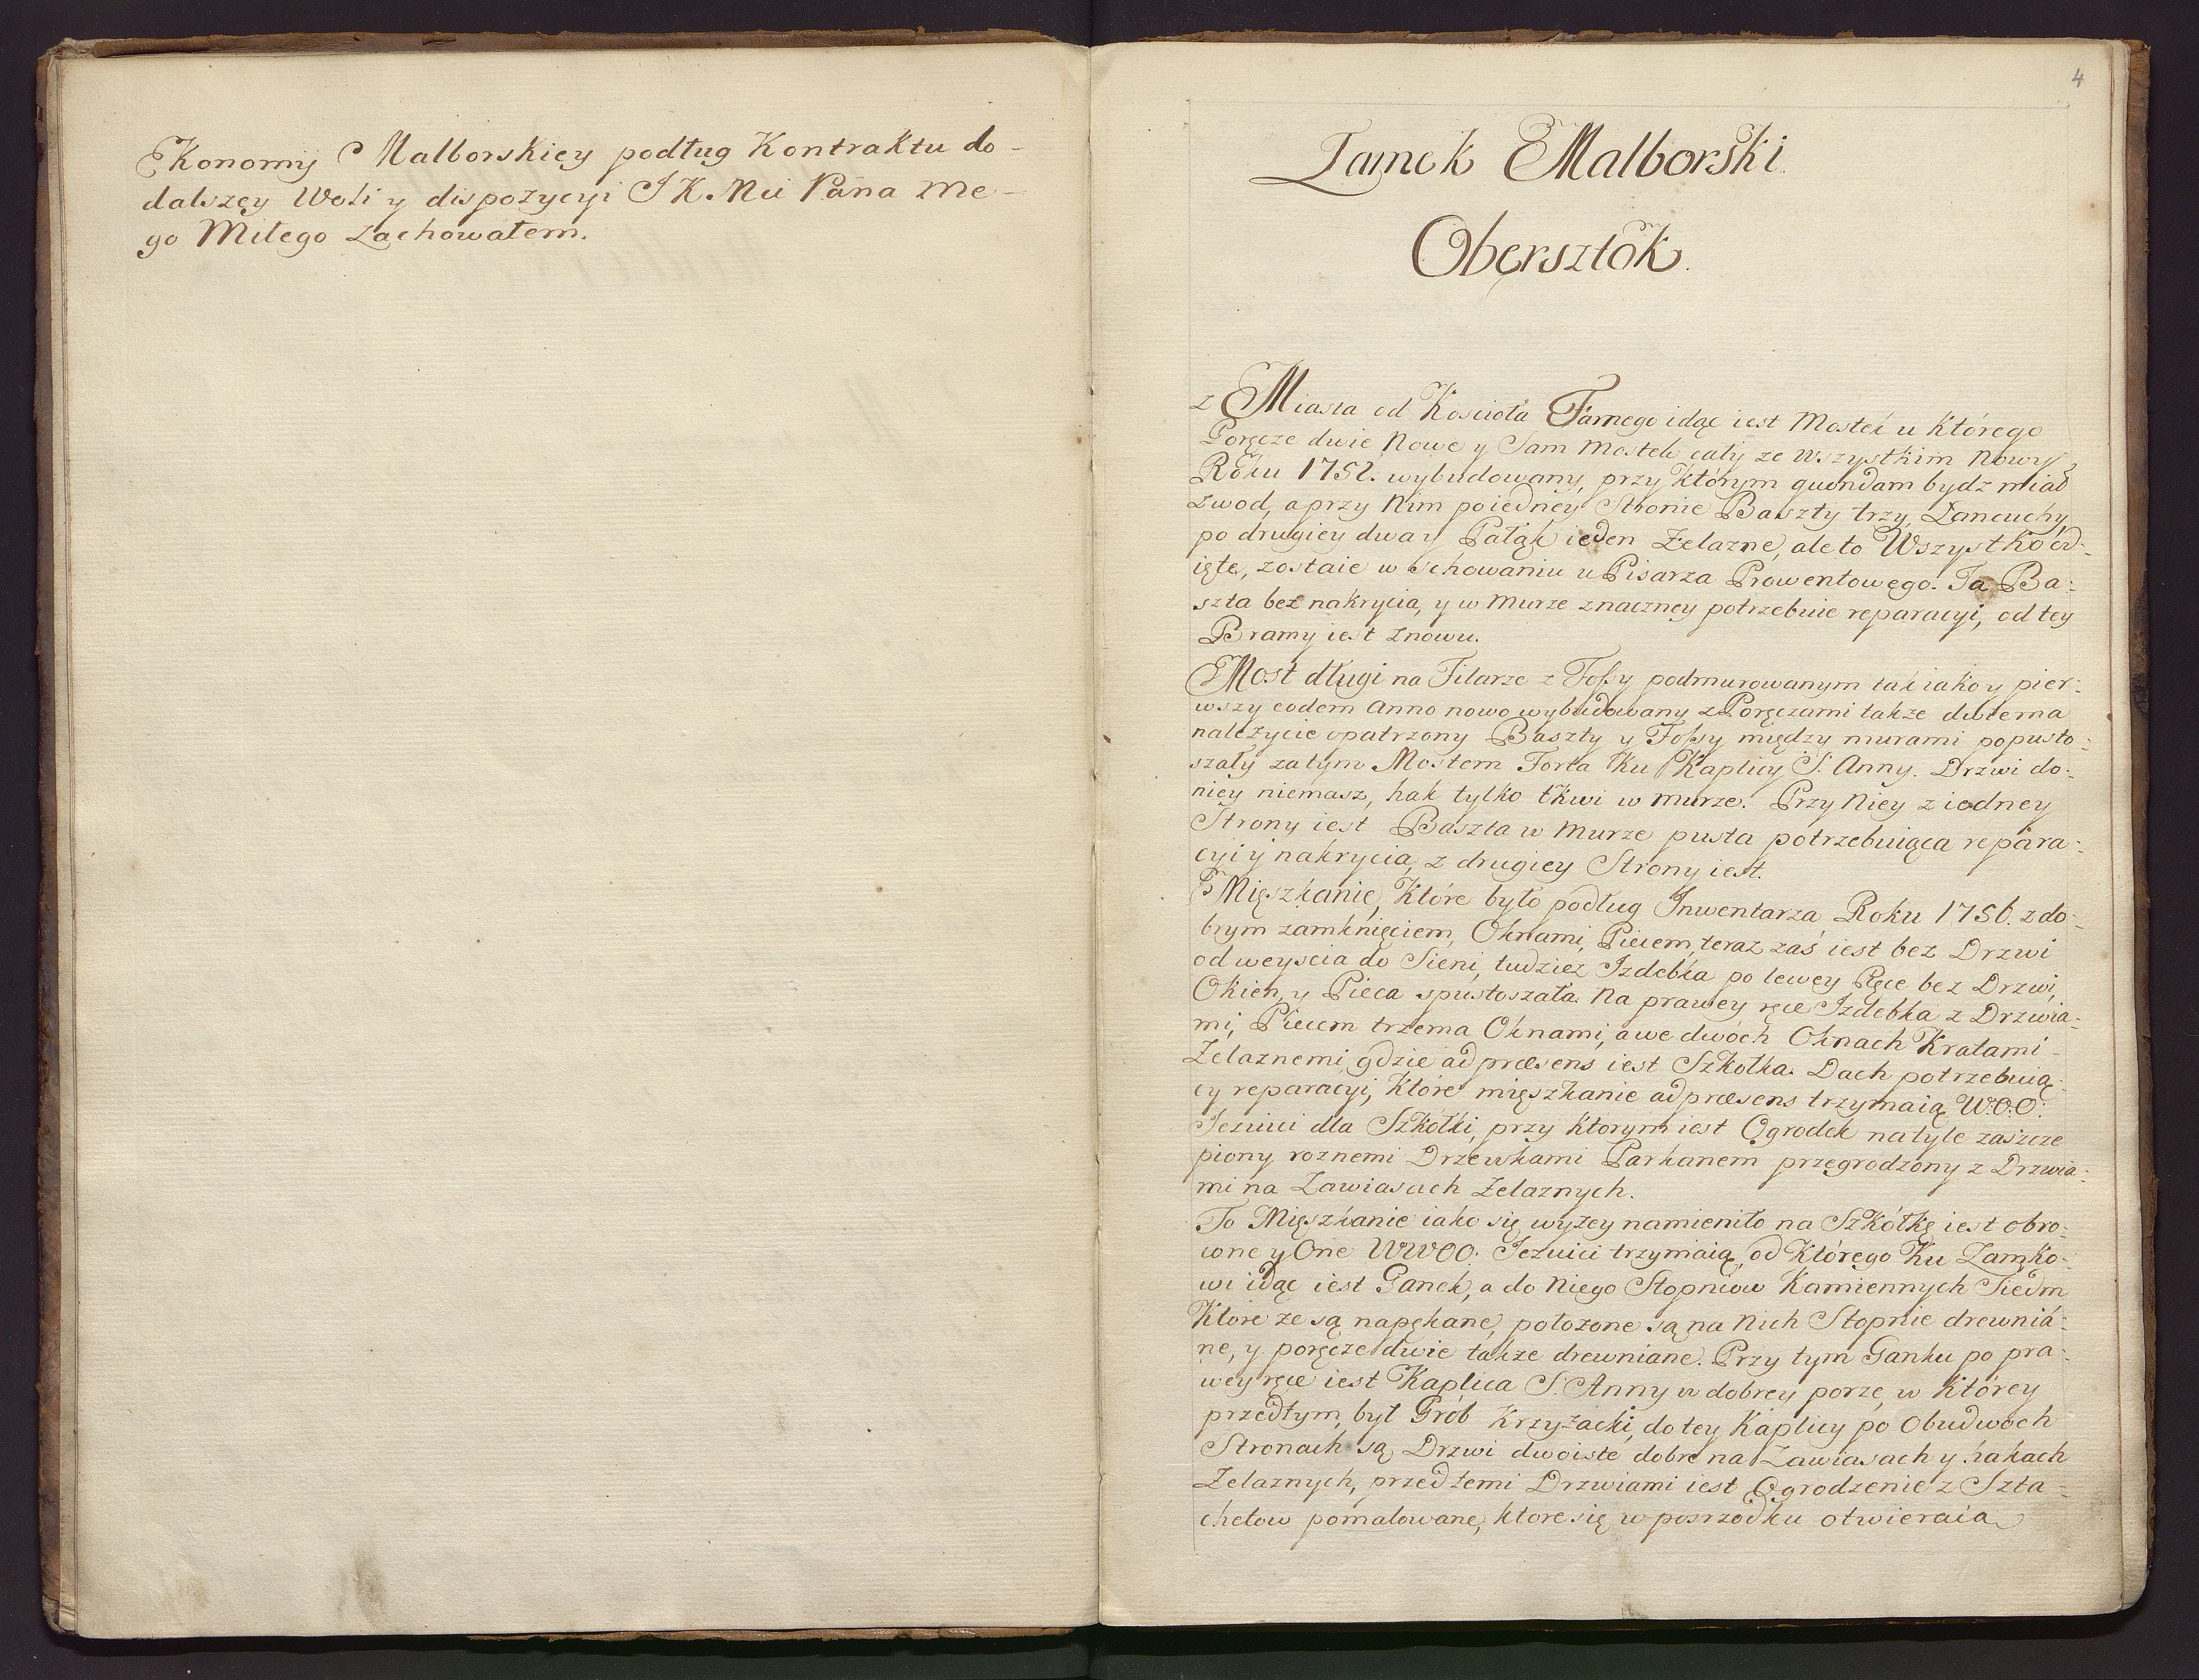 Ekonomij Malborskiey podług Kontraktu do-
dalszey Woli y dispozycyi J K Mci Pana Me-
go Miłego zachowałem.
4
Zamek Malborski.
Obersztok.
z Miasta od Kościoła Farnego idąc iest Mostek u którego
Poręcze dwie Nowe y Sam Mostek cały ze Wszystkim Nowy
Roku 1752. wybudowany, przy którym quondam bydz miał
zwod, a przy Nim po iedney Stronie Baszty trzy, Łancuchy,
po drugiey dwa y Pałąk ieden Zelazne, ale to Wszystko od-
ięte, zostaie w schowaniu u Pisarza Prowentowego. Ta Ba:
szta bez nakrycia, y w murze znaczney potrzebuie reparacyi, od tey
Bramy iest znowu.
Most długi na Filarze z Fossy podmurowanym tak iako y pier:
wszy eodem Anno nowo wybudowany z Poręczami takze dwiema
należycie opatrzony Baszty y Fossy między murami popusto:
szały za tym Mostem Forta Ku Kaplicy S. Anny. Drzwi do:
niey niemasz, hak tylko tkwi w murze. Przy Niey z iedney
Strony iest Baszta w murze pusta potrzebuiąca repara:
cyi y nakrycia, z drugiey Strony iest.
Mięszkanie, Które było podług Inwentarza Roku 1756. z do:
brym zamknięciem, Oknami, Piecem, teraz zaś iest bez Drzwi
od weyscia do Sieni, tudziez Izdebka po lewey Ręce bez Drzwi,
Okien, y Pieca spustoszała. Na prawey ręce Izdebka z Drzwia:
mi, Piecem trzema Oknami, a we dwóch Oknach Kratami
Zelaznemi, gdzie ad præsens iest Szkołka. Dach potrzebuią:
cy reparacyi, Które mięszkanie ad præsens trzymaią W:O:O:
Jezuici dla Szkółki, przy ktorym iest Ogrodek na tyle zaszcze
piony roznemi Drzewkami Parkanem przegrodzony z Drzwia:
mi na Zawiasach Zelaznych.
To Mięszkanie iako się wyżey namieniło na Szkółkę iest obro:
cone y One WWOO. Jezuici trzymaią, od Którego Ku Zamko:
wi idąc iest Ganek, a do Niego Stopniow Kamiennych Siedm
Które ze są napękane, położone są na Nich Stopnie drewnia:
ne, y poręcze dwie takze drewniane. Przy tym Ganku po pra:
wey ręce iest Kaplica S. Anny w dobrey porze, w Którey
przedtym był Grób Krzyżacki, do tey Kaplicy po Obudwoch
Stronach są Drzwi dwoiste dobre na Zawiasach y hakach
Zelaznych, przed temi Drzwiami iest Ogrodzenie z Szta:
chetow pomalowane, ktore się w posrzodku otwieraia